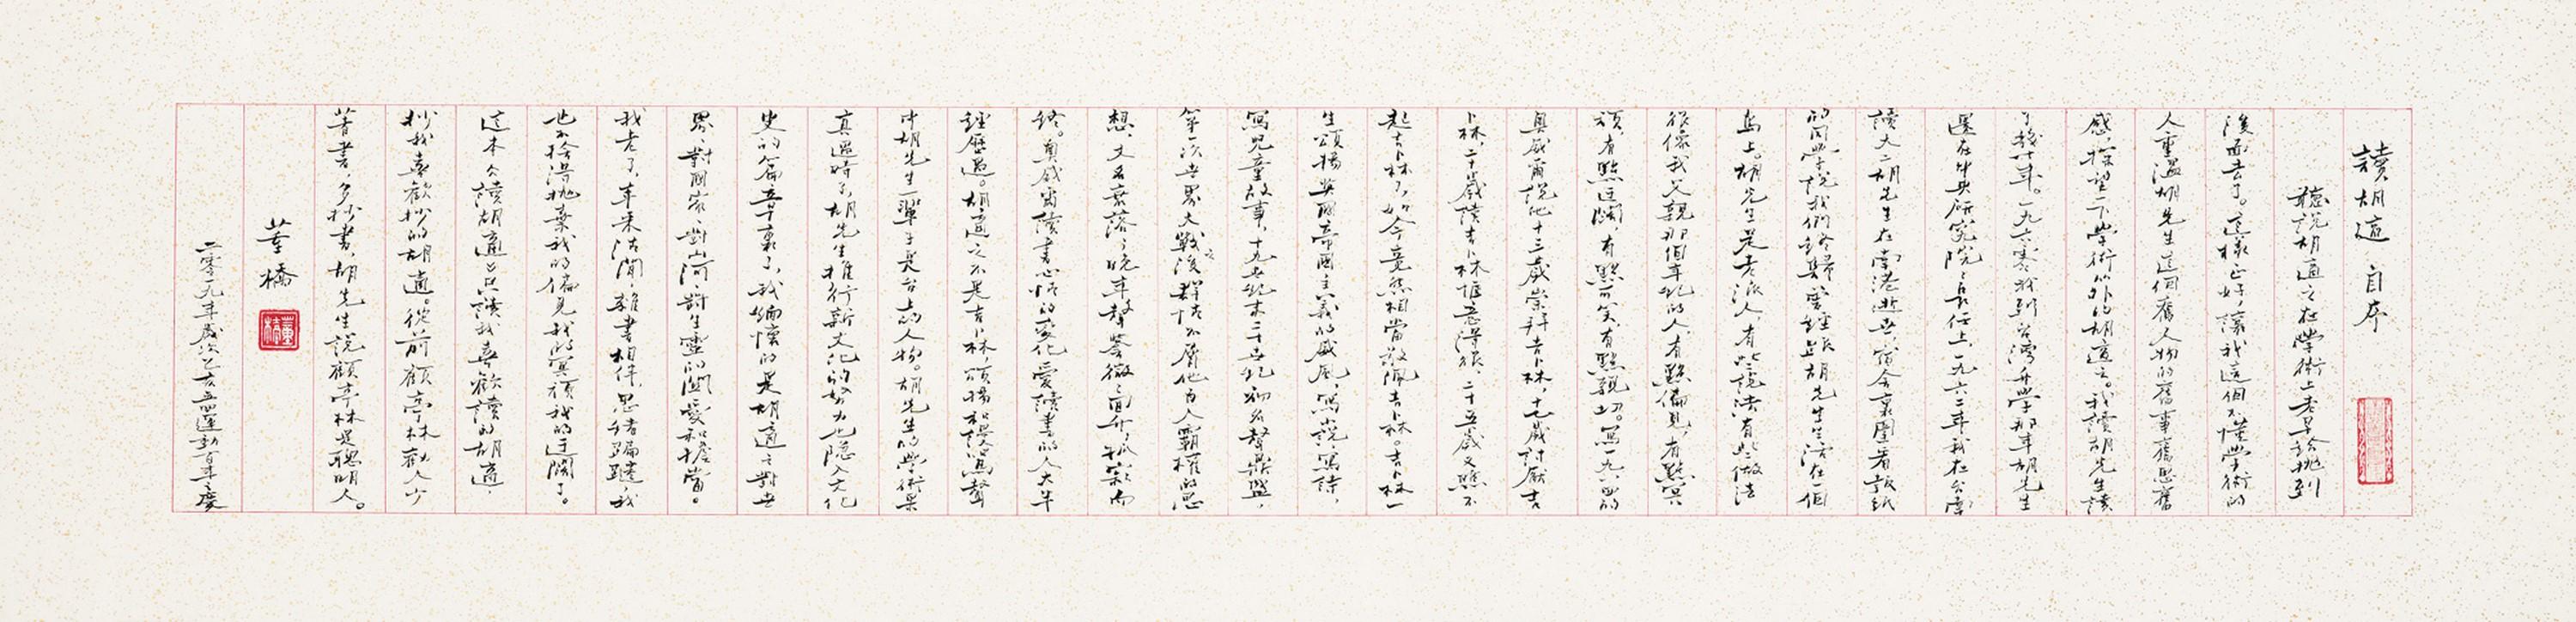 讀胡適 自序
聽說胡適之在學術上老早給拋到
後面去了。這樣也好，讓我這個不懂學術的
人重溫胡先生這個舊人物的舊事舊思舊
感，探望一下學術以外的胡適之。我讀胡先生讀
了幾十年。一九六零我到台灣升學那年胡先生
還在中央研究院院長任上，一九六二年我在台南
讀大二胡先生在南港逝世，宿舍裏圍著看報紙
的同學說我們終歸曾經跟胡先生生活在一個
島上。胡先生是老派人，有些說法有些做法
很像我父親那個年紀的人，有點偏見，有點冥
頑，有點迂闊，有點可笑，有點親切。寫一九八四的
奧威爾說他十三歲崇拜吉卜林，十七歲討厭吉
卜林，二十歲讀吉卜林愜意得很，二十五歲又瞧不
起吉卜林了，如今竟然相當敬佩吉卜林。吉卜林一
生頌揚英國帝國主義的威風，寫小說，寫詩，
寫兒童故事，十九世紀末二十世紀初名聲鼎盛，
第一次世界大戰之後群情不屑他古人霸權的思
想，文名衰落，晚年聲譽微微回升，孤寂而
終。奧威爾讀書心情的變化愛讀書的人大半
經歷過。胡適之不是吉卜林，頌揚和撻伐聲
中胡先生一輩子是台上的人物。胡先生的學術果
真過時了，胡先生推行新文化的努力也隱入文化
史的篇章裏了，我緬懷的是胡適之對世
界、對國家、對山河、對生靈的關愛和擔當。
我老了，年來清閒，雜書相伴，思緒蹁躚，我
也不捨得拋棄我的偏見我的冥頑我的迂闊了。
這本《讀胡適》只讀我喜歡讀的胡適
抄我喜歡抄的胡適。從前顧亭林勸人少
著書，多抄書，胡先生說顧亭林是聰明人。
董橋
二零一九年歲次己亥五四運動百年之慶